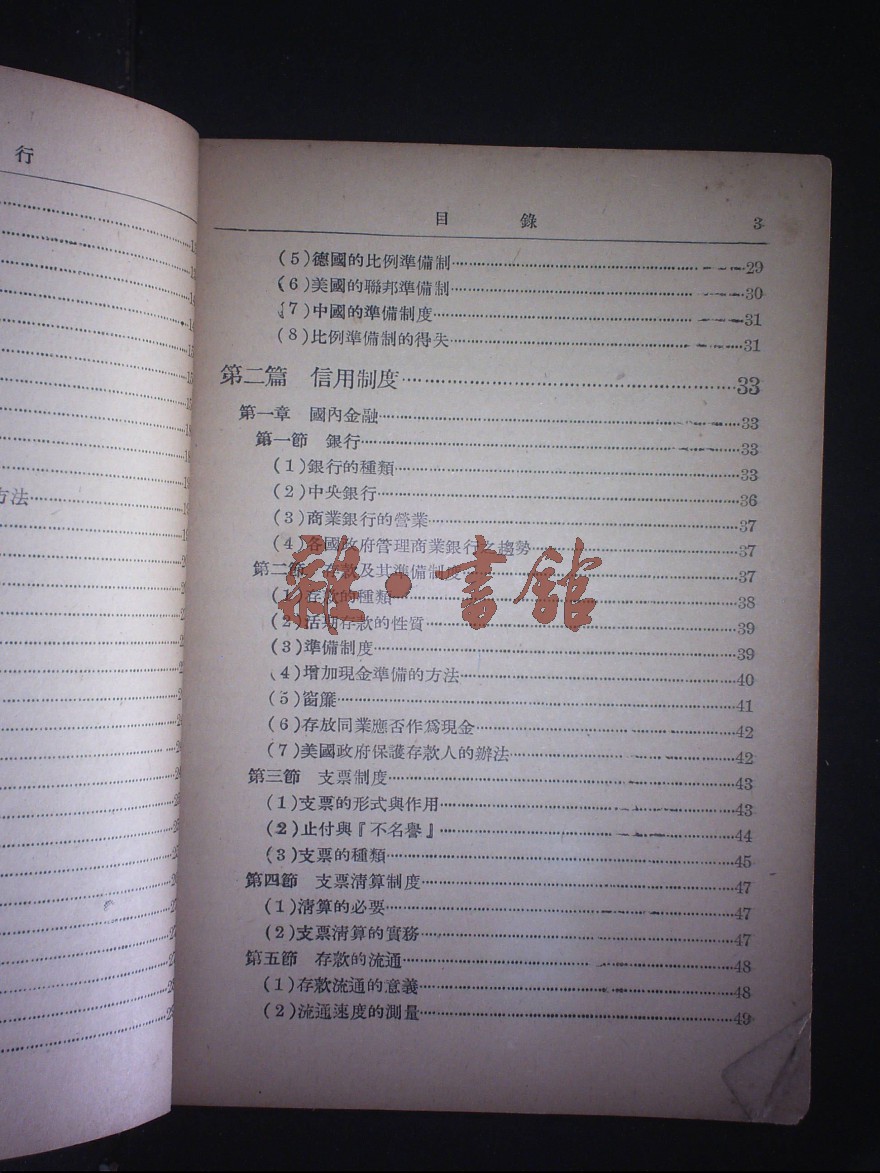 行
方法
目錄 3
(5)德國的比例準備制 29
(6)美國的聯邦準備制 30
(7)中國的準備制度 31
(8)比例準備制的得失 31
第二篇 信用制度 33
第一章 國內金融 33
第一節 銀行 33
(1)銀行的種類 33
(2)中央銀行 36
(3)商業銀行的營業 37
(4)各國政府管理商業銀行之趨勢 37
第二節 存款及其準備制度 37
(1)存款的種類 38
(2)活期存款的性質 39
(3)準備制度 39
(4)增加現金準備的方法 40
(5)窗簾 41
(6)存放同業應否作爲現金 42
(7)美國政府保護存款人的辦法 42
第三節 支票制度 43
(1)支票的形式與作用 43
(2)止付與『不名譽』 44
(3)支票的種類 45
第四節 支票清算制度 47
(1)清算的必要 47
(2)支票清算的實務 47
第五節 存款的流通 48
(1)存款流通的意義 48
(2)流通速度的測量 49
雜·書館